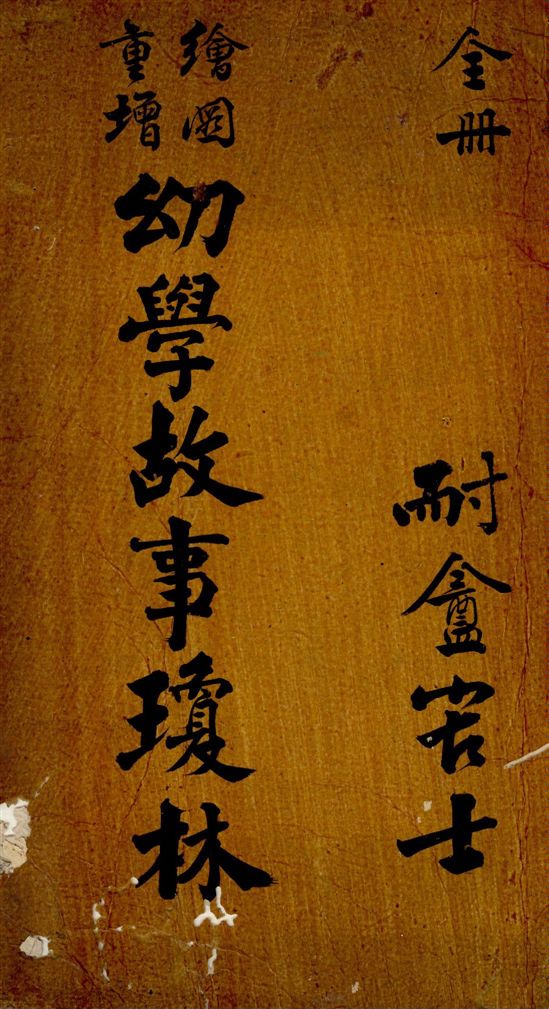 全冊
耐盦居士
繪圖
重增
幼學故事瓊林